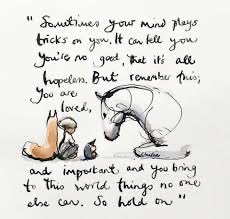 "Sometimes your mind plays
tricks on you. It can tell you
you're no good, that it's all
hopeless. But remember this,
You are
loved,
and important and you bring
to this world things no one
else can. So hold on"